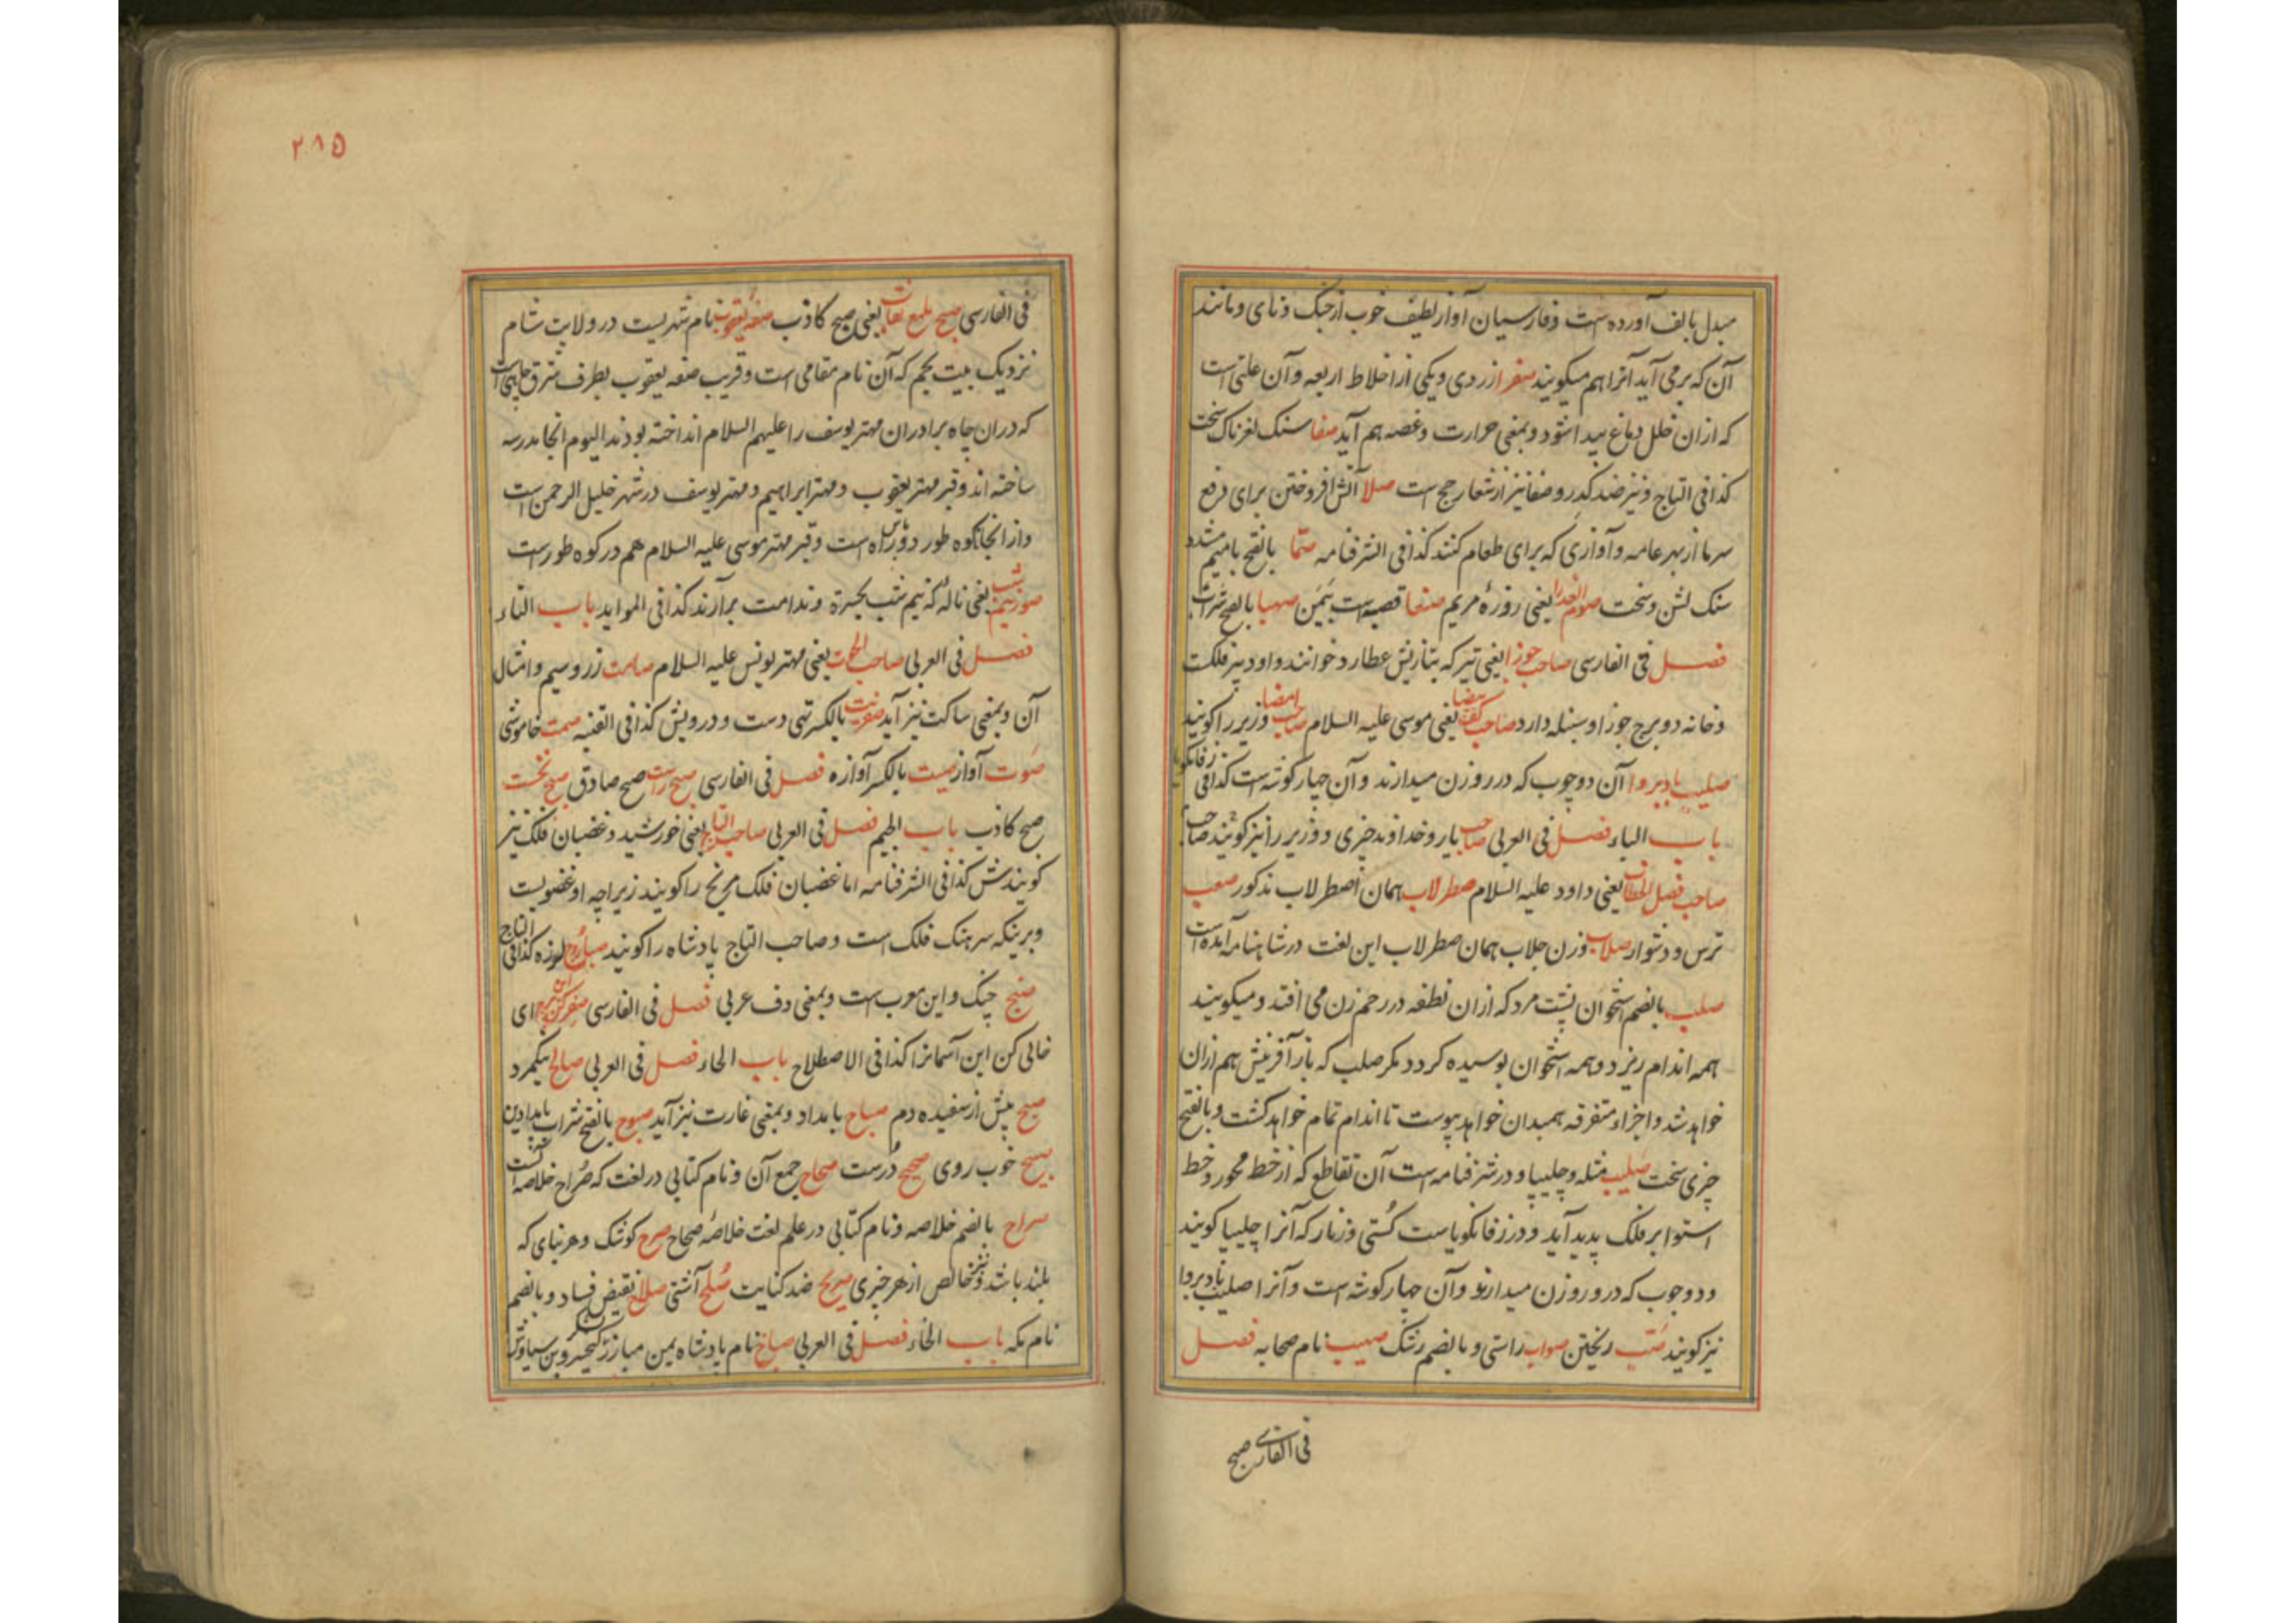 مبدل بالف آورده است و فارسیان آواز لطیف خوب از چنک و نای و مانند
آن که برمی آید آنرا هم میکویند صفرا زردی و یکی از اخلاط اربعه و آن علتی است
که ازان خلل دماغ پیدا شود و بمعنی حرارت و غصه هم آید صفا سنک لغزناک سخت
کذا فی التاج و نیز ضد کدر و صفا نیز از شعار حج است صلا آتش افروختن برای دفع
سرما از بهر عامه و آوازی که برای طعام کنند کذا فی الشرفنامه صمّا بالفتح بامیم مشدد
سنک لشن و سخت صوم العذرا یعنی روزهٔ مریم صنعا قصبه است بیمن صهبا بالفتح شراب
فصل فی الفارسی صاحب جوزا یعنی تیر که بتازیش عطارد خوانند و او دبیر فلکست
و خانه دو برج جوزا و سنبله دارد صاحب کف بیضا یعنی موسی علیه السلام صاحب امضا وزیر را کویند
صلیب بادیروا آن دو چوب که در روزن میدارند و آن چهار کوشه است کذا فی زفانکویا
باب الباء فصل فی العربی صاحب یار و خداوند چیزی و وزیر را نیز کویند
صاحب فصل الخطاب یعنی داود علیه السلام صطرلاب همان اصطرلاب مذکور صعب
ترس و دشوار صلاب وزن جلاب همان صطرلاب این لغت در شاهنامه آمده است
صلب بالضم استخوان پشت مرد که ازان نطفه در رحم زن می افتد و میکویند
همه اندام ریزد و همه استخوان بوسیده کردد مکر صلب که باز آفرینش هم ازان
خواهد شد و اجزاء متفرقه همبدان خواهد پیوست تا اندام تمام خواهد کشت و بالفتح
چیزی سخت صلیب مثله و چلیپا و در شرفنامه است آن تقاطع که از خط محور و خط
استوا بر فلک پدید آید و در زفانکویاست کستی و زنار که آنرا چلیپا کویند
و دو چوب که در روزن میدارند و آن چهار کوشه است و آنرا صلیب بادیروا
نیز کویند صبّ ریختن صواب راستی و بالضم رشک صهیب نام صحابه فصل
فی الفارسی صبح
۲۸۵
فی الفارسی صبح ملمع نقاب یعنی صبح کاذب صفه یعقوب نام شهریست در ولایت شام
نزدیک بیت لحم که آن نام مقامی است و قریب صفه یعقوب بطرف شرق چاهی است
که دران چاه برادران مهتر یوسف را علیهم السلام انداخته بودند الیوم آنجا مدرسه
ساخته اند و قبر مهتر یعقوب و مهتر ابراهیم و مهتر یوسف در شهر خلیل الرحمن است
و از آنجا تا کوه طور راه است و قبر مهتر موسی علیه السلام هم در کوه طور است
صور نیم شب یعنی ناله که نیم شب بحسرة و ندامت برآرند کذا فی الموايد باب التاء
فصل فی العربی صاحب الحوت یعنی مهتر یونس علیه السلام صامت زر و سیم و امثال
آن و بمعنی ساکت نیز آید صفریت بالکسر تهی دست و درویش کذا فی القنیه صمت خاموشی
صوت آواز صیت بالکسر آوازه فصل فی الفارسی صبح راست صبح صادق صبح نخست
صبح کاذب باب الجیم فصل فی العربی صاحب التاج یعنی خورشید و غضبان فلک نیز
کویندش کذا فی الشرفنامه اما غضبان فلک مریخ را کویند زیراچه او غضویست
و برینکه سرهنک فلک است و صاحب التاج پادشاه را کویند صاروج لوزه کذا فی التاج
صنج چنک و این معرب است و بمعنی دف عربی فصل فی الفارسی صفر کن این برج ای
خالی کن این آسمانرا کذا فی الاصطلاح باب الحاء فصل فی العربی صالح نیکمرد
صبح پیش از سفیده دم صباح بامداد و بمعنی غارت نیز آید صبوح بالفتح شراب بامدادین
صبیح خوب روی صحیح درست صحاح جمع آن و نام کتابی در لغت که صراح خلاصه آنست
صراح بالضم خلاصه و نام کتابی در علم لغت خلاصهٔ صحاح صرح کوشک و هر بنای که
بلند باشد و نیز خالص از هر چیزی صریح ضد کنایت صلح آشتی صلاح نقیض فساد و بالضم
نام مکه باب الخاء فصل فی العربی صباخ نام پادشاه یمن مبارز لشکر کیخسرو بن سیاوش